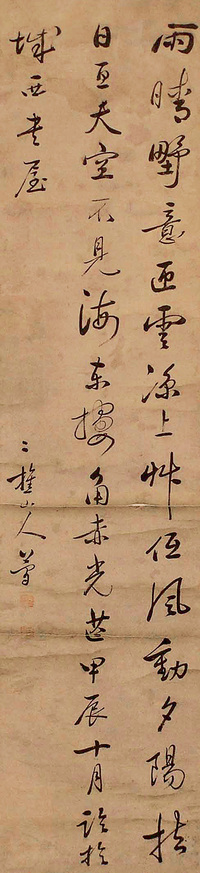 雨晴野意匝雲涼上艸低風動夕陽
日亙天空不見海東樓角赤光芒甲辰十月於
城西書屋
二樵山人簡